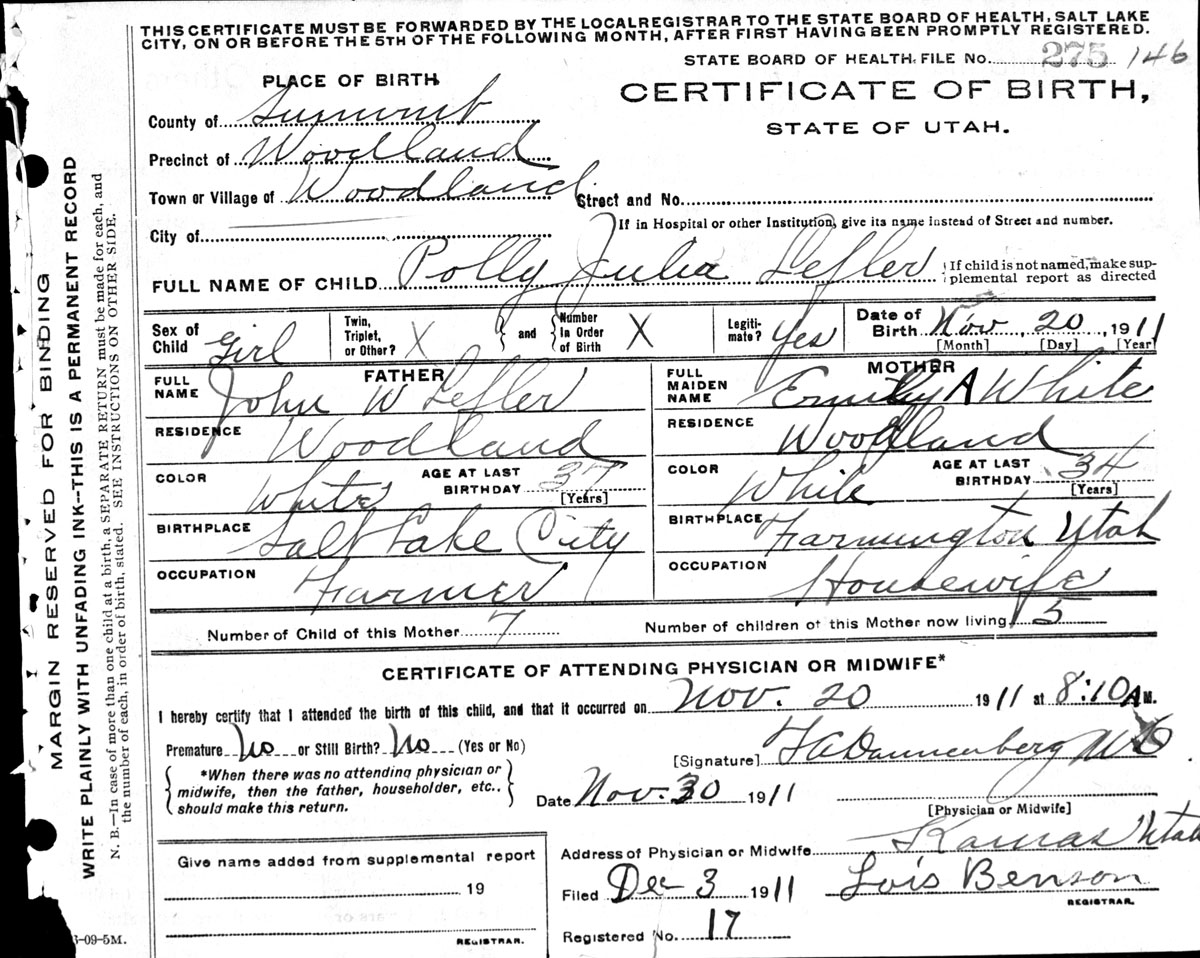 THIS CERTIFICATE MUST BE FORWARDED BY THE LOCAL REGISTRAR TO THE STATE BOARD OF HEALTH, SALT LAKE
CITY, ON OR BEFORE THE 5TH OF THE FOLLOWING MONTH, AFTER FIRST HAVING BEEN PROMPTLY REGISTERED.
STATE BOARD OF HEALTH FILE No. 275 146
PLACE OF BIRTH
CERTIFICATE OF BIRTH,
STATE OF UTAH.
County of Summit
Precinct of Woodland
Town or Village of Woodland Street and No.
If in Hospital or other Institution, give its name instead of Street and number.
City of
FULL NAME OF CHILD Polly Julia Lefler {If child is not named, make sup-
plemental report as directed
Sex of Child Girl Twin, Triplet, or Other? X and Number in Order of Birth X Legiti-mate? Yes Date of Birth Nov 20, 1911
[Month] [Day] [Year]
FATHER MOTHER
FULL NAME John W Lefler FULL MAIDEN NAME Emily A White
RESIDENCE Woodland RESIDENCE Woodland
COLOR White AGE AT LAST BIRTHDAY 37 [Years] COLOR White AGE AT LAST BIRTHDAY 34 [Years]
BIRTHPLACE Salt Lake City BIRTHPLACE Farmington Utah
OCCUPATION Farmer OCCUPATION Housewife
Number of Child of this Mother 7 Number of children of this Mother now living 5
CERTIFICATE OF ATTENDING PHYSICIAN OR MIDWIFE*
I hereby certify that I attended the birth of this child, and that it occurred on Nov. 20 1911 at 8:10 A M.
Premature No or Still Birth? No (Yes or No)
[Signature] F A Dannenberg M D
*When there was no attending physician or
midwife, then the father, householder, etc.,
should make this return.
Date Nov. 30 1911
[Physician or Midwife]
Give name added from supplemental report
19
REGISTRAR.
Address of Physician or Midwife Kamas Utah
Filed Dec 3 1911 Lois Benson
REGISTRAR.
Registered No. 17
3-09-5M.
MARGIN RESERVED FOR BINDING
WRITE PLAINLY WITH UNFADING INK--THIS IS A PERMANENT RECORD
N. B.—In case of more than one child at a birth, a SEPARATE RETURN must be made for each, and
the number of each, in order of birth, stated. SEE INSTRUCTIONS ON OTHER SIDE.